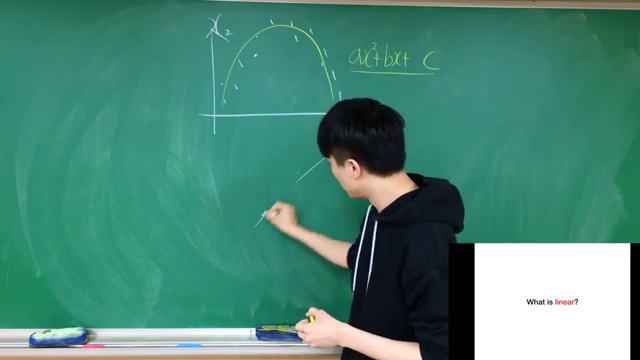 x₂
ax²+bx+ c
What is linear?